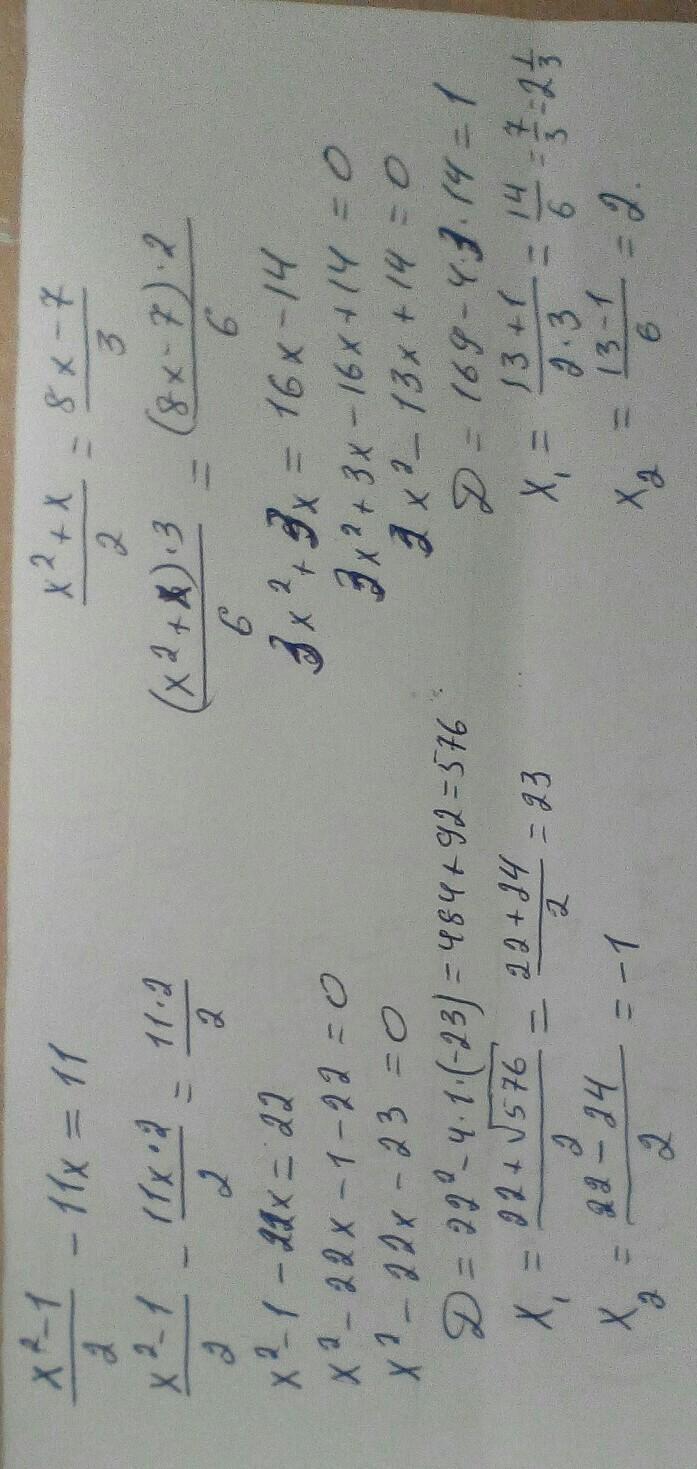 (x²-1)/2 - 11x = 11
(x²-1)/2 - (11x·2)/2 = (11·2)/2
x²-1-22x = 22
x²-22x-1-22=0
x²-22x-23=0
D=22²-4·1·(-23)=484+92=576
x₁ = (22+√576)/2 = (22+24)/2 = 23
x₂ = (22-24)/2 = -1
(x²+x)/2 = (8x-7)/3
((x²+x)·3)/6 = ((8x-7)·2)/6
3x²+3x = 16x-14
3x²+3x-16x+14=0
3x²-13x+14=0
D=169-4·3·14=1
x₁ = (13+1)/(2·3) = 14/6 = 7/3 = 2 1/3
x₂ = (13-1)/6 = 2.